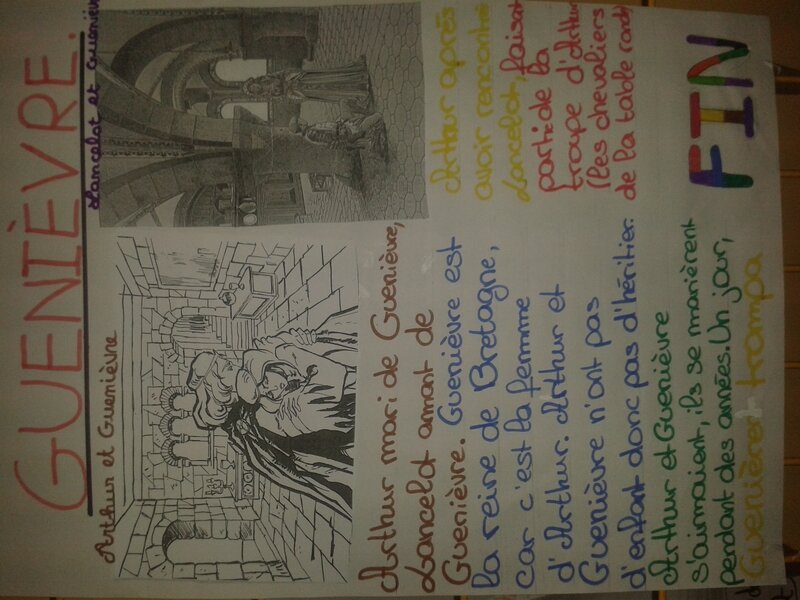 GUENIÈVRE.
Arthur et Guenièvre
Lancelot et Guenièvre
Arthur mari de Guenièvre,
Lancelot amant de
Guenièvre. Guenièvre est
la reine de Bretagne,
car c'est la femme
d'Arthur. Arthur et
Guenièvre n'ont pas
d'enfant donc pas d'héritier.
Arthur et Guenièvre
s'airmaient, ils se marièrent
pendant des années. Un jour,
Guenièrer trompa
Arthur après
avoir rencontré
Lancelot, faisant
partide la
troupe d'Arthur
(les chevaliers
de la table ronde)
FIN